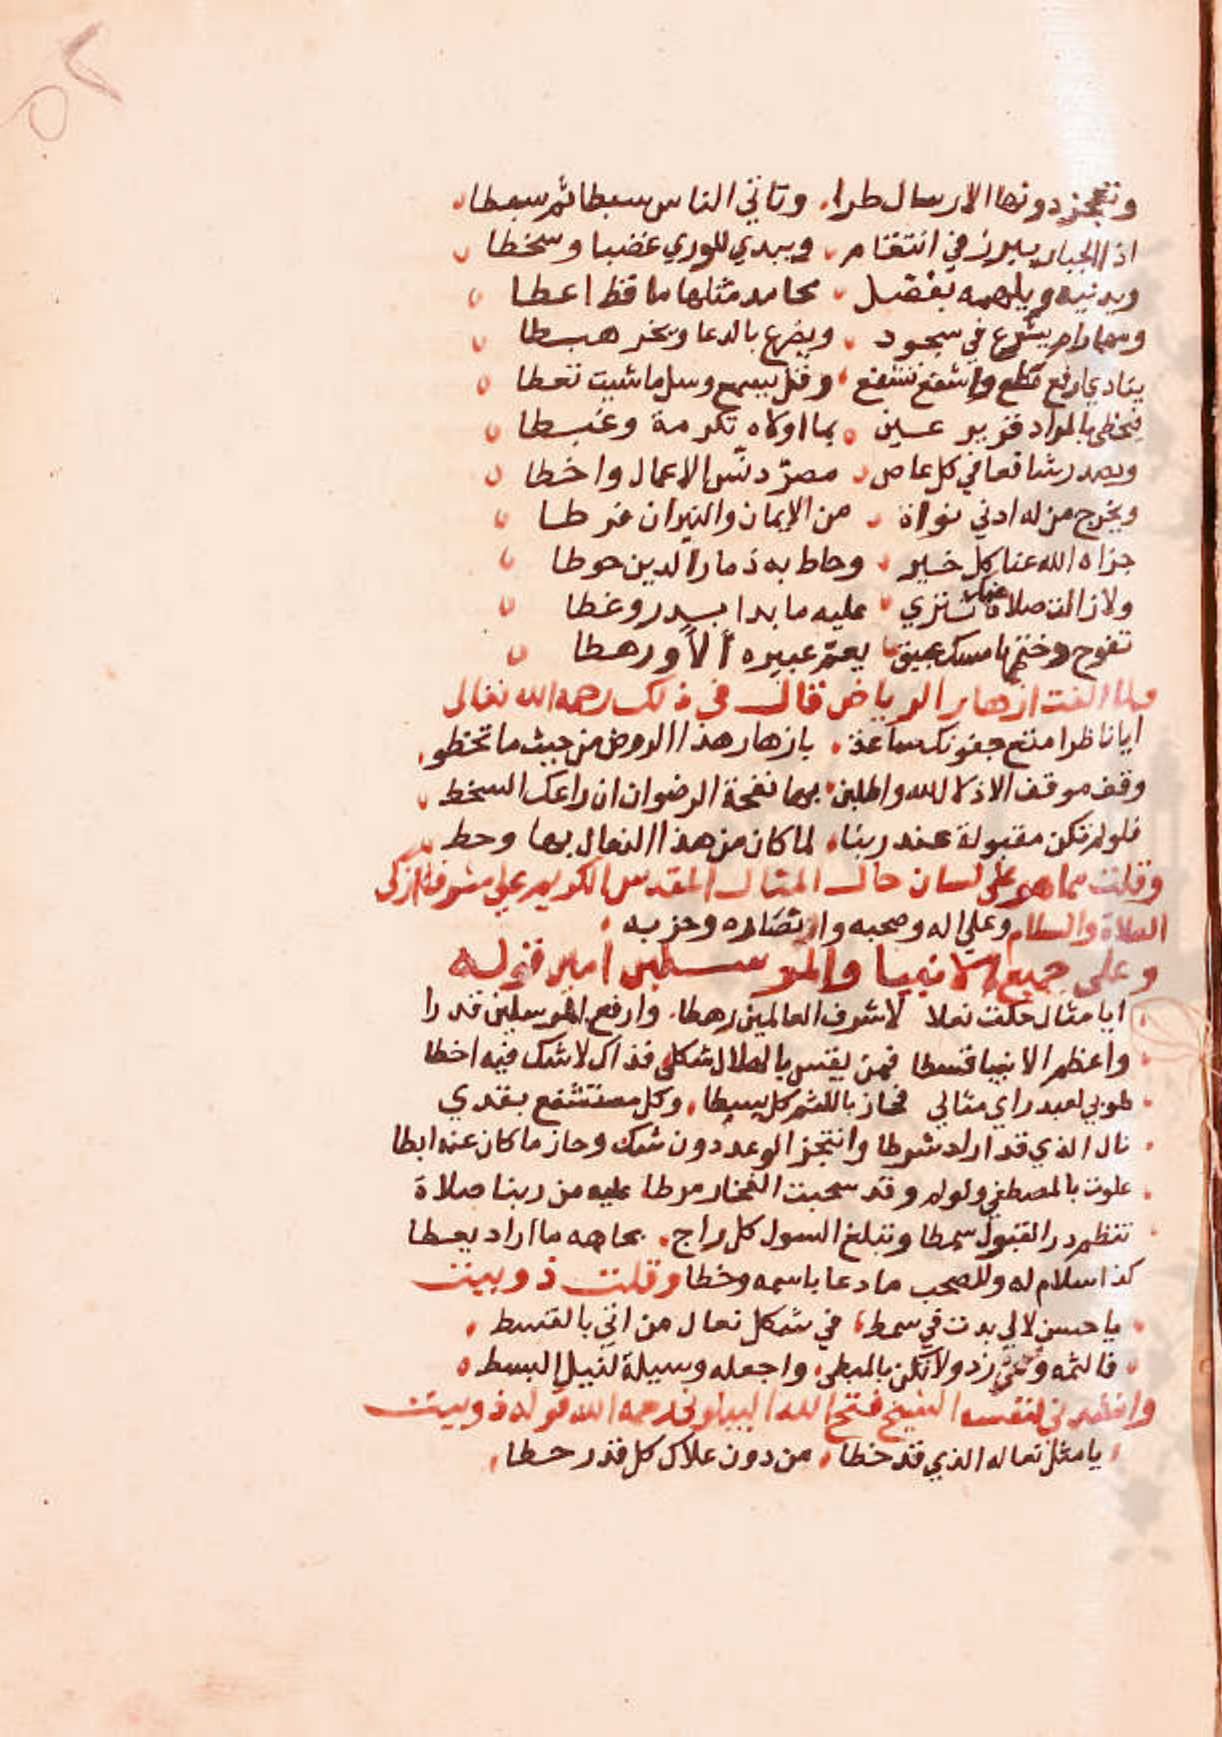 وتعجز دونها الارسال طرا وتاتي الناس سبطا ثم سبطا
اذ الجبار يبرز في انتقام ويبدي للوري غضبا وسخطا
ويدنيه ويلهمه بفضل محامد مثلها ما قط اعطا
ومهما رام يشرع في سجود ويضرع بالدعا ويخر هبطا
ينادي ارفع واشفع تشفع وقل يسمع وسل ما شيت تعطا
فيحظى بالمراد قرير عين بما اولاه تكرمة وغبطا
ويصدر شافعا في كل عاص مصر دنس الاعمال واخطا
ويخرج من له ادني نواة من الايمان والنيران فرطا
جزاه الله عنا كل خير وحاط به ذمار الدين حوطا
ولازالت صلاة تترى عليه ما بدا بدر وغطا
تفوح وختمها مسك عبيق يعم عبيره آلا ورهطا
ولما الفت ازهار الرياض قال في ذلك رحمه الله تعالى
ايا ناظرا متع جفونك ساعة بازهار هذا الروض من حيث ما تخطو
وقف موقف الاذلال لله واطلبن بها نفحة الرضوان ان راعك السخط
فلو لم تكن مقبولة عند ربنا لما كان من هذا النعال بها وحط
وقلت مما هو على لسان حال المثال المقدس الكريم على مشرفه ازكى
الصلاة والسلام وعلي اله وصحبه وانصاره وحزبه
وعلى جميع الانبيا والمرسلين امين قوله
ايا مثال حكت نعلا لاشرف العالمين رهطا وارفع المرسلين قدرا
واعظم الانبيا قسطا فمن يقس بالهلال شكلي فذاك لاشك فيه اخطا
طوبي لعبد راي مثالي فحاز باللثم كل بسطا وكل مستشفع بقدي
نال الذي قد اراد شرطا وانتجز الوعد دون شك وحاز ما كان عنه ابطا
علوت بالمصطفي ولولم وقد سحبت الفخار مرطا عليه من ربنا صلاة
تنظم در القبول سمطا وتبلغ السول كل راج بجاهه ما اراد يعطا
كذا سلام له وللصحب ما دعا باسمه وخطا وقلت ذوبيت
يا حسن لالي بدت في سمط في شكل نعال من اتي بالقسط
فالثمه وزد ولا تكن بالمبطي واجعله وسيلة لنيل البسط
وانشدني لنفسه الشيخ فتح الله البيلوني رحمه الله قوله ذوبيت
يا مثل نعاله الذي قد خطا من دون علاك كل قدر حطا